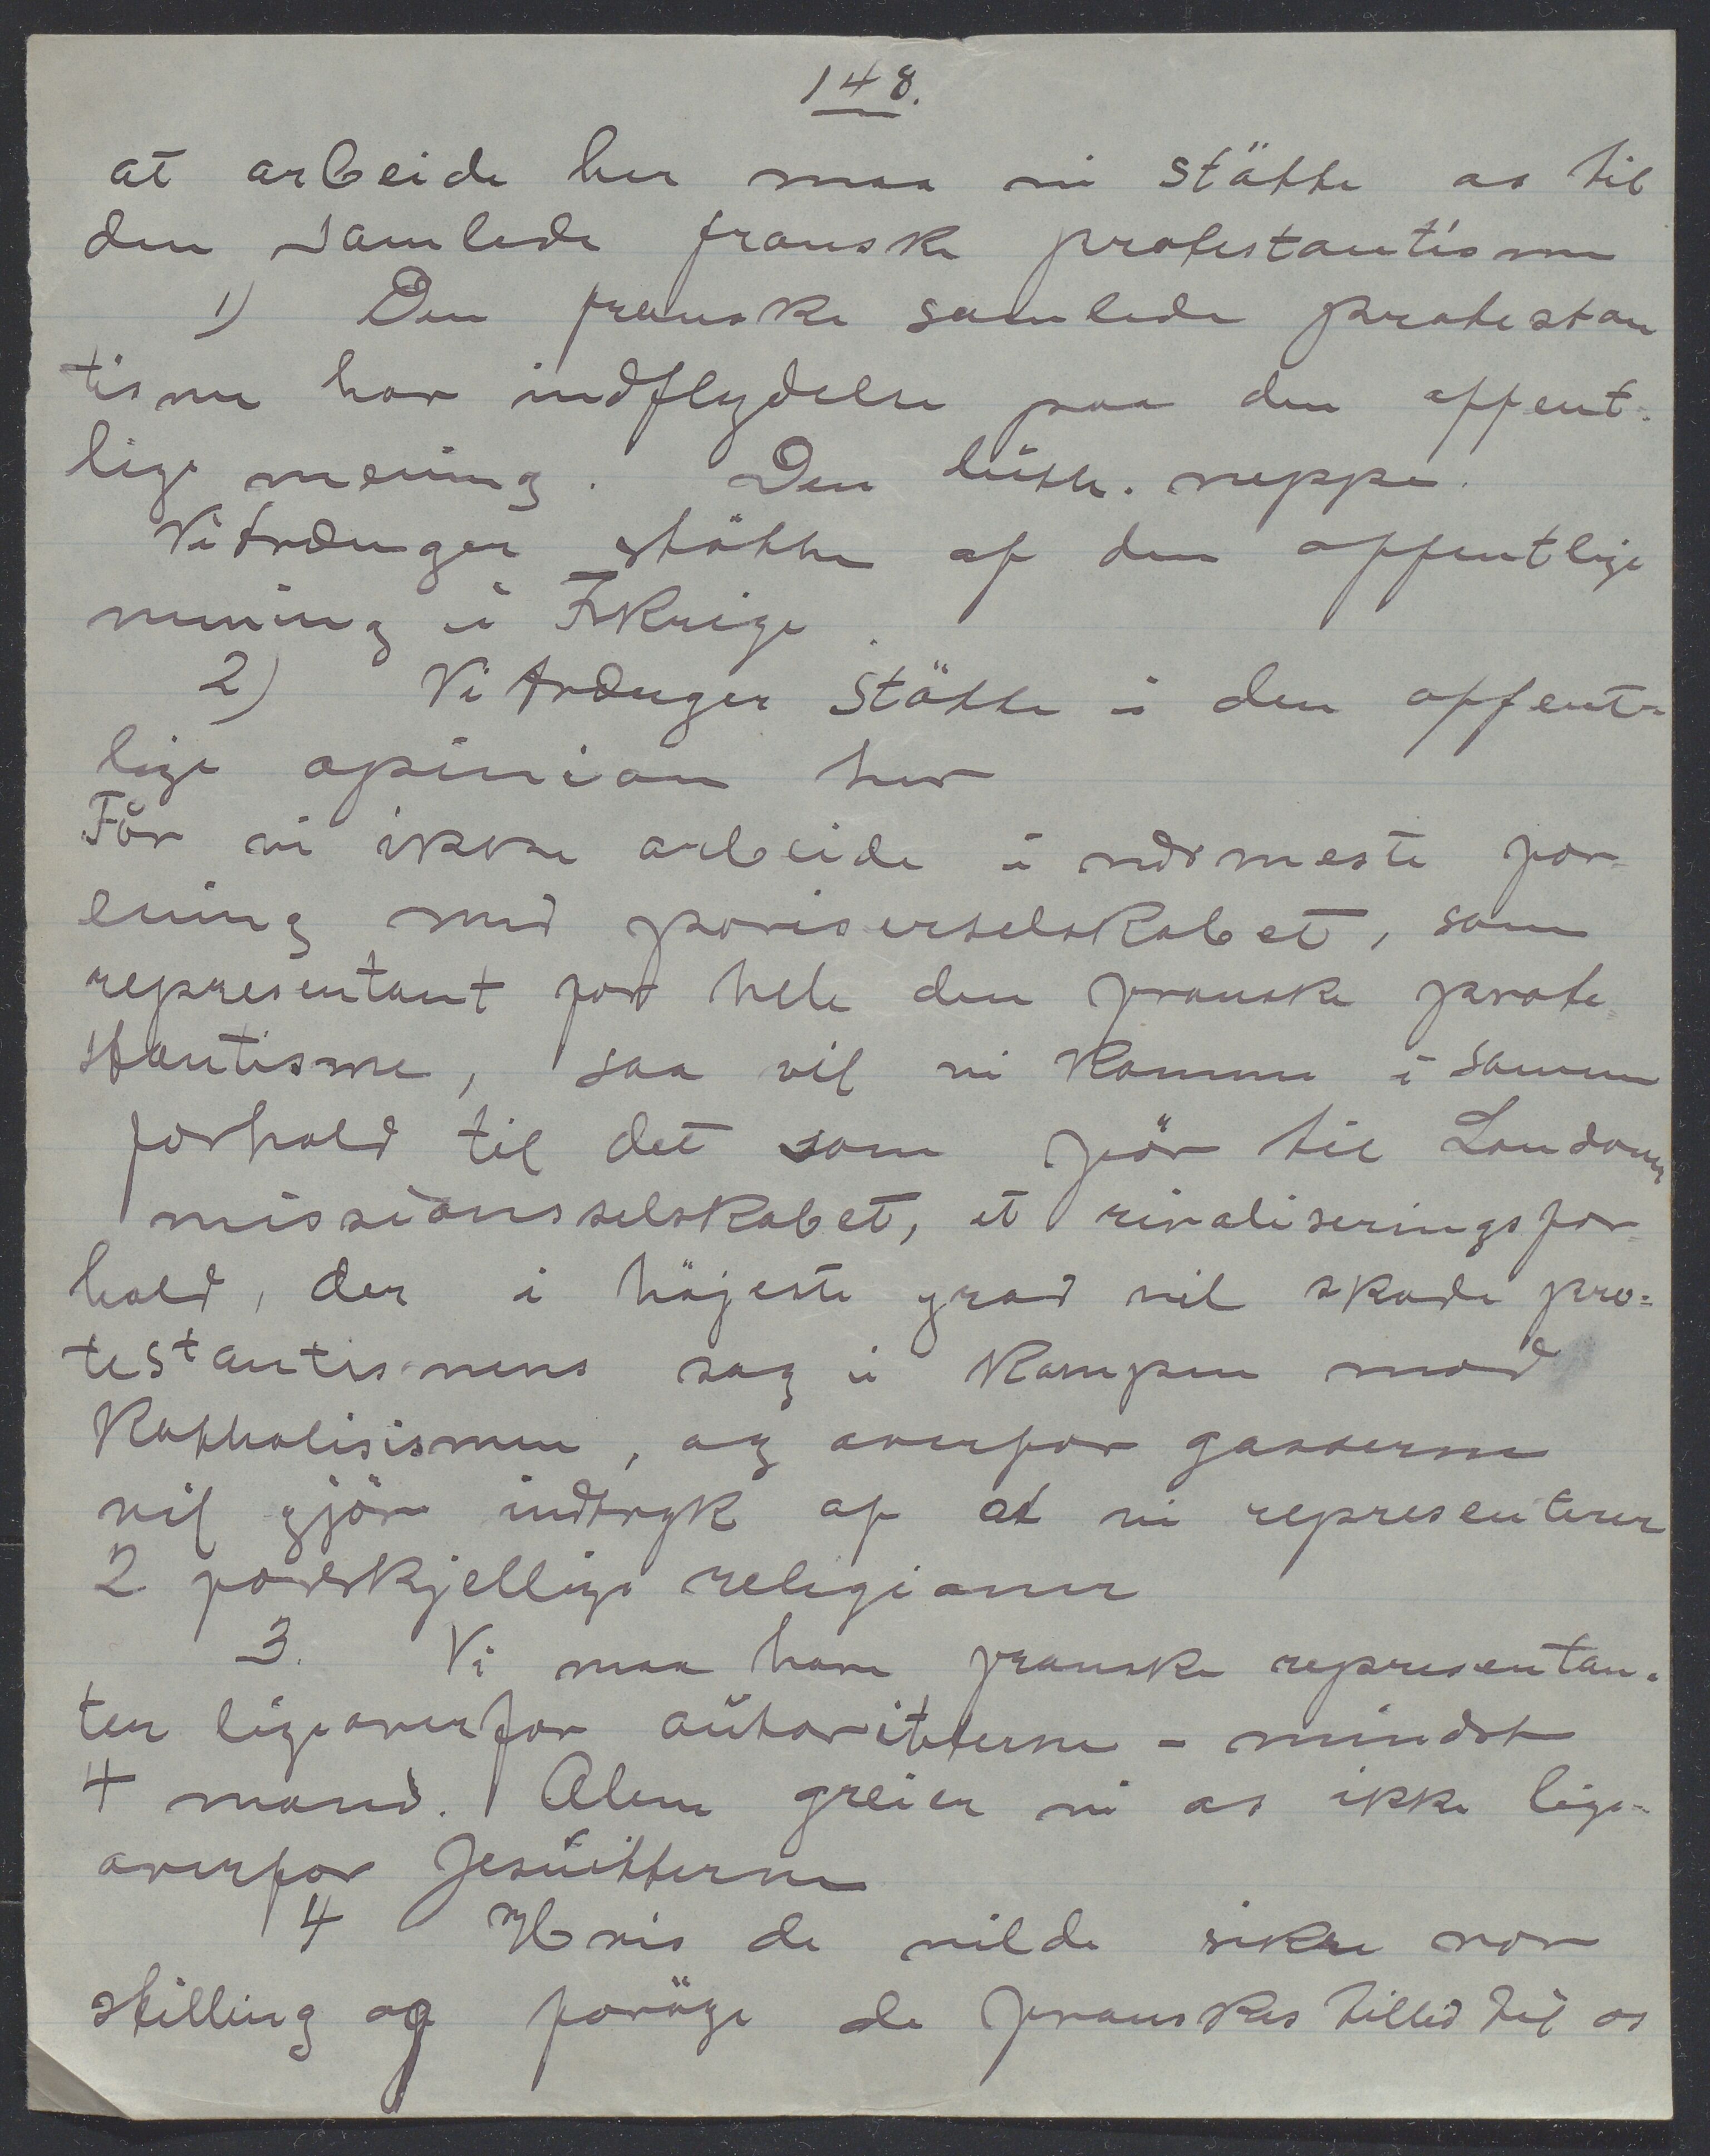 148.
at arbeide her maa vi stötte os til
den samlede franske protestantisme
1) Den franske samlede protestan
tisme har indflydelse paa den offent-
lige mening. Den luth. neppe.
Vi trænger stötte af den offentlige
mening i Fkrige.
2) Vi trænger stötte i den offent-
lige opinion her
Får vi ikke arbeide i nærmeste for-
ening med pariserselskabet, som
representant for hele den franske prote
stantisme, saa vil vi komme i samme
forhold til det som för til London
missionsselskabet, et rivaliseringsfor-
hold, der i höjeste grad vil skade pro=
testantismens sag i kampen mod
Katholisismen, og overfor gasserne
vil gjöre indtryk af at vi representerer
2 forskjellige religioner
3. Vi maa have franske representan-
ter ligeoverfor autoriteterne - mindst
4 mand. Alene greier vi os ikke lige-
overfor Jesuitterne
4 Hvis de vilde sikre vor
stilling og foröge de franskes tillid til os